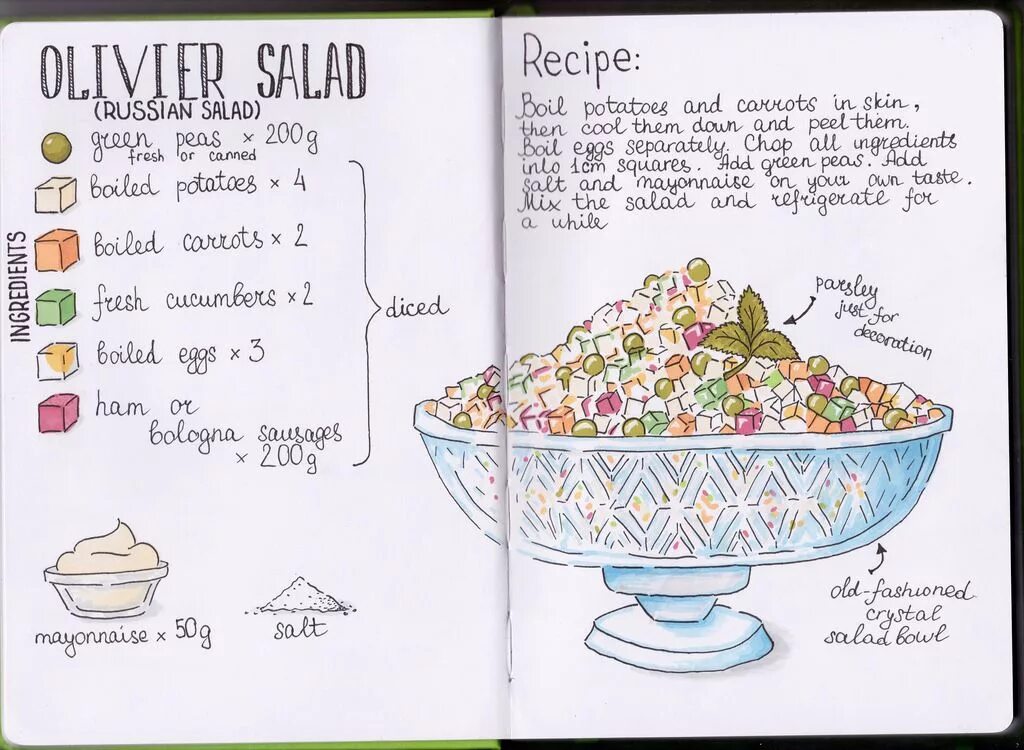 OLIVIER SALAD
(RUSSIAN SALAD)
INGREDIENTS
green peas × 200g
fresh or canned
boiled potatoes × 4
boiled carrots × 2
fresh cucumbers × 2
boiled eggs × 3
ham or
bologna sausages
× 200g
diced
mayonnaise × 50g
salt
Recipe:
Boil potatoes and carrots in skin,
then cool them down and peel them.
Boil eggs separately. Chop all ingredients
into 1cm squares. Add green peas. Add
salt and mayonnaise on your own taste.
Mix the salad and refrigerate for
a while
parsley
just for
decoration
old-fashioned
crystal
salad bowl